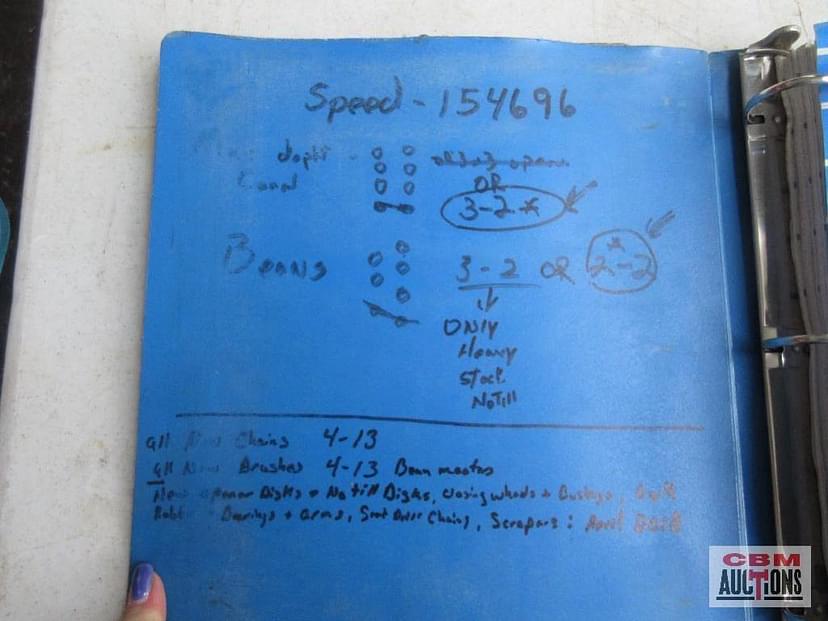 Speed - 154696
depth
OR
3-2*
Beans 3-2 OR 2-2
*
ONLY
Heavy
Stock
NoTill
All New Chains 4-13
All New Brushes 4-13 Bean meters
New opener Disks + No till Disks, closing wheels + Bushings,
Bearings + arms, Seed Drive Chains, Scrapers: April 2018
CBM
AUCTIONS